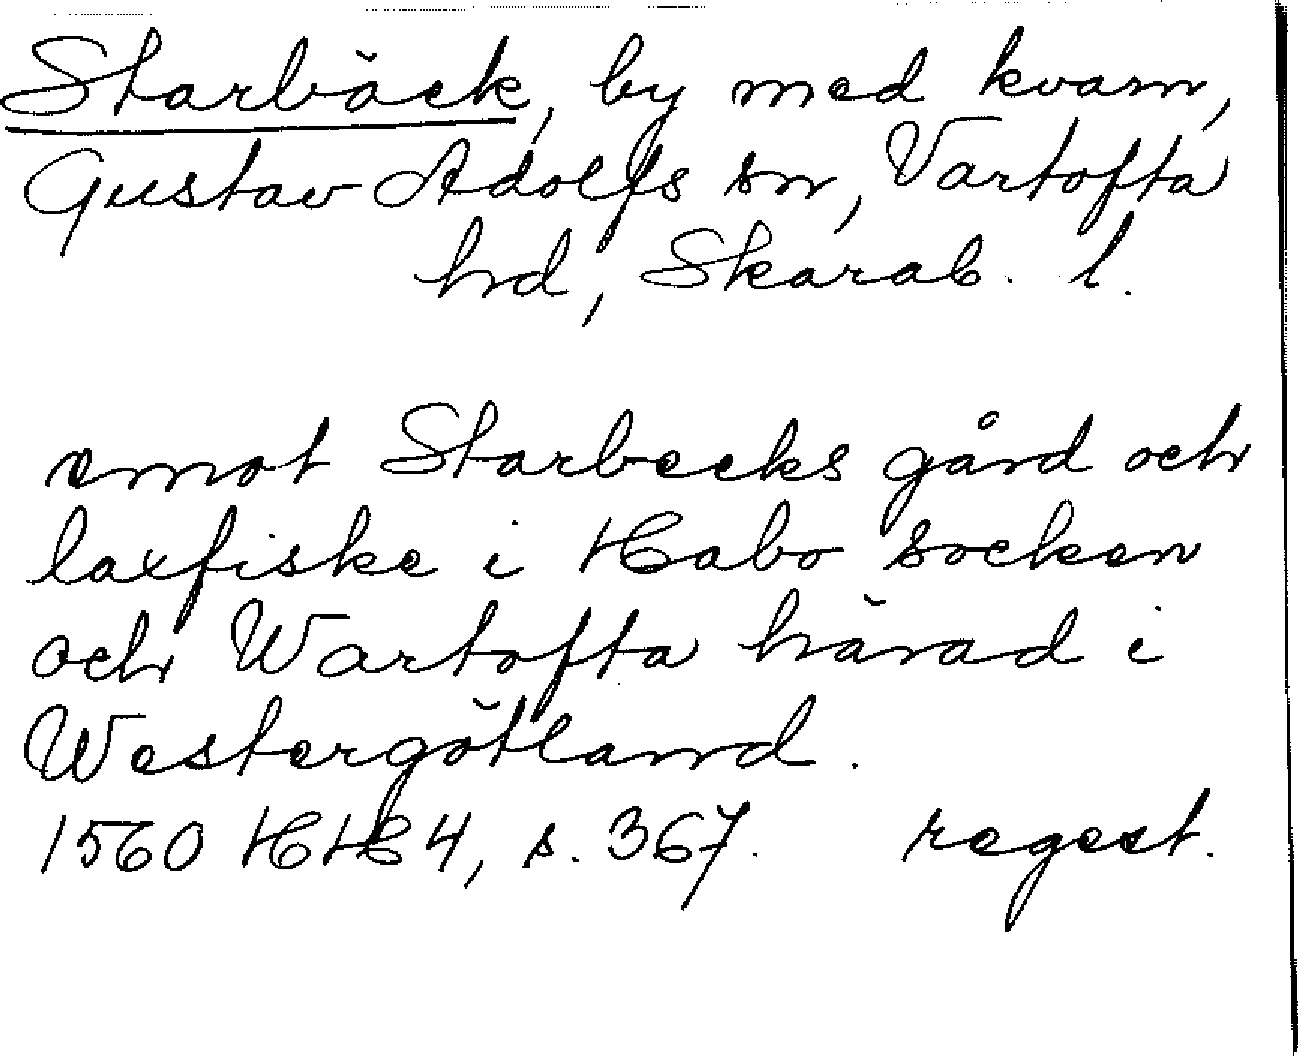 Starbäck, by med kvarn,
Gustav Adolfs sn, Vartofta
hd, Skarab. l.
emot Starbecks gård och
laxfiske i Habo socken
och Wartofta härad i
Westergötland.
1560 HH 4, s. 367. regest.